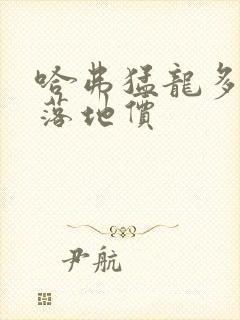 哈弗猛龍多
落地價
尹航